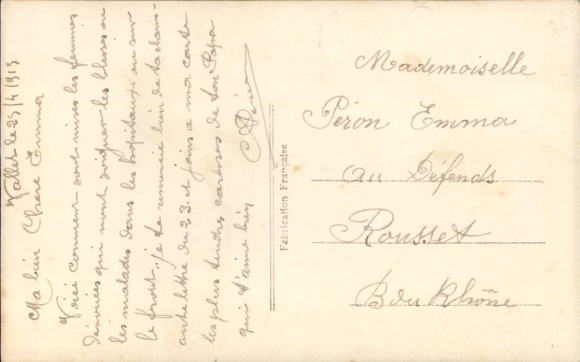 Vallet le 25/4/1915
Ma bien Chere Emma
Voici comment sont mises les femmes
dévouées qui vont soigner les blessés ou
les malades dans les hopitaux ou sur
le front. je te remercie bien de ta charm-
ante lettre du 23. et joins a ma carte
les plus tendres caresses de ton Papa
qui t'aime bien
Péron
Fabrication Française
Mademoiselle
Péron Emma
au Défends
Rousset
B du Rhône